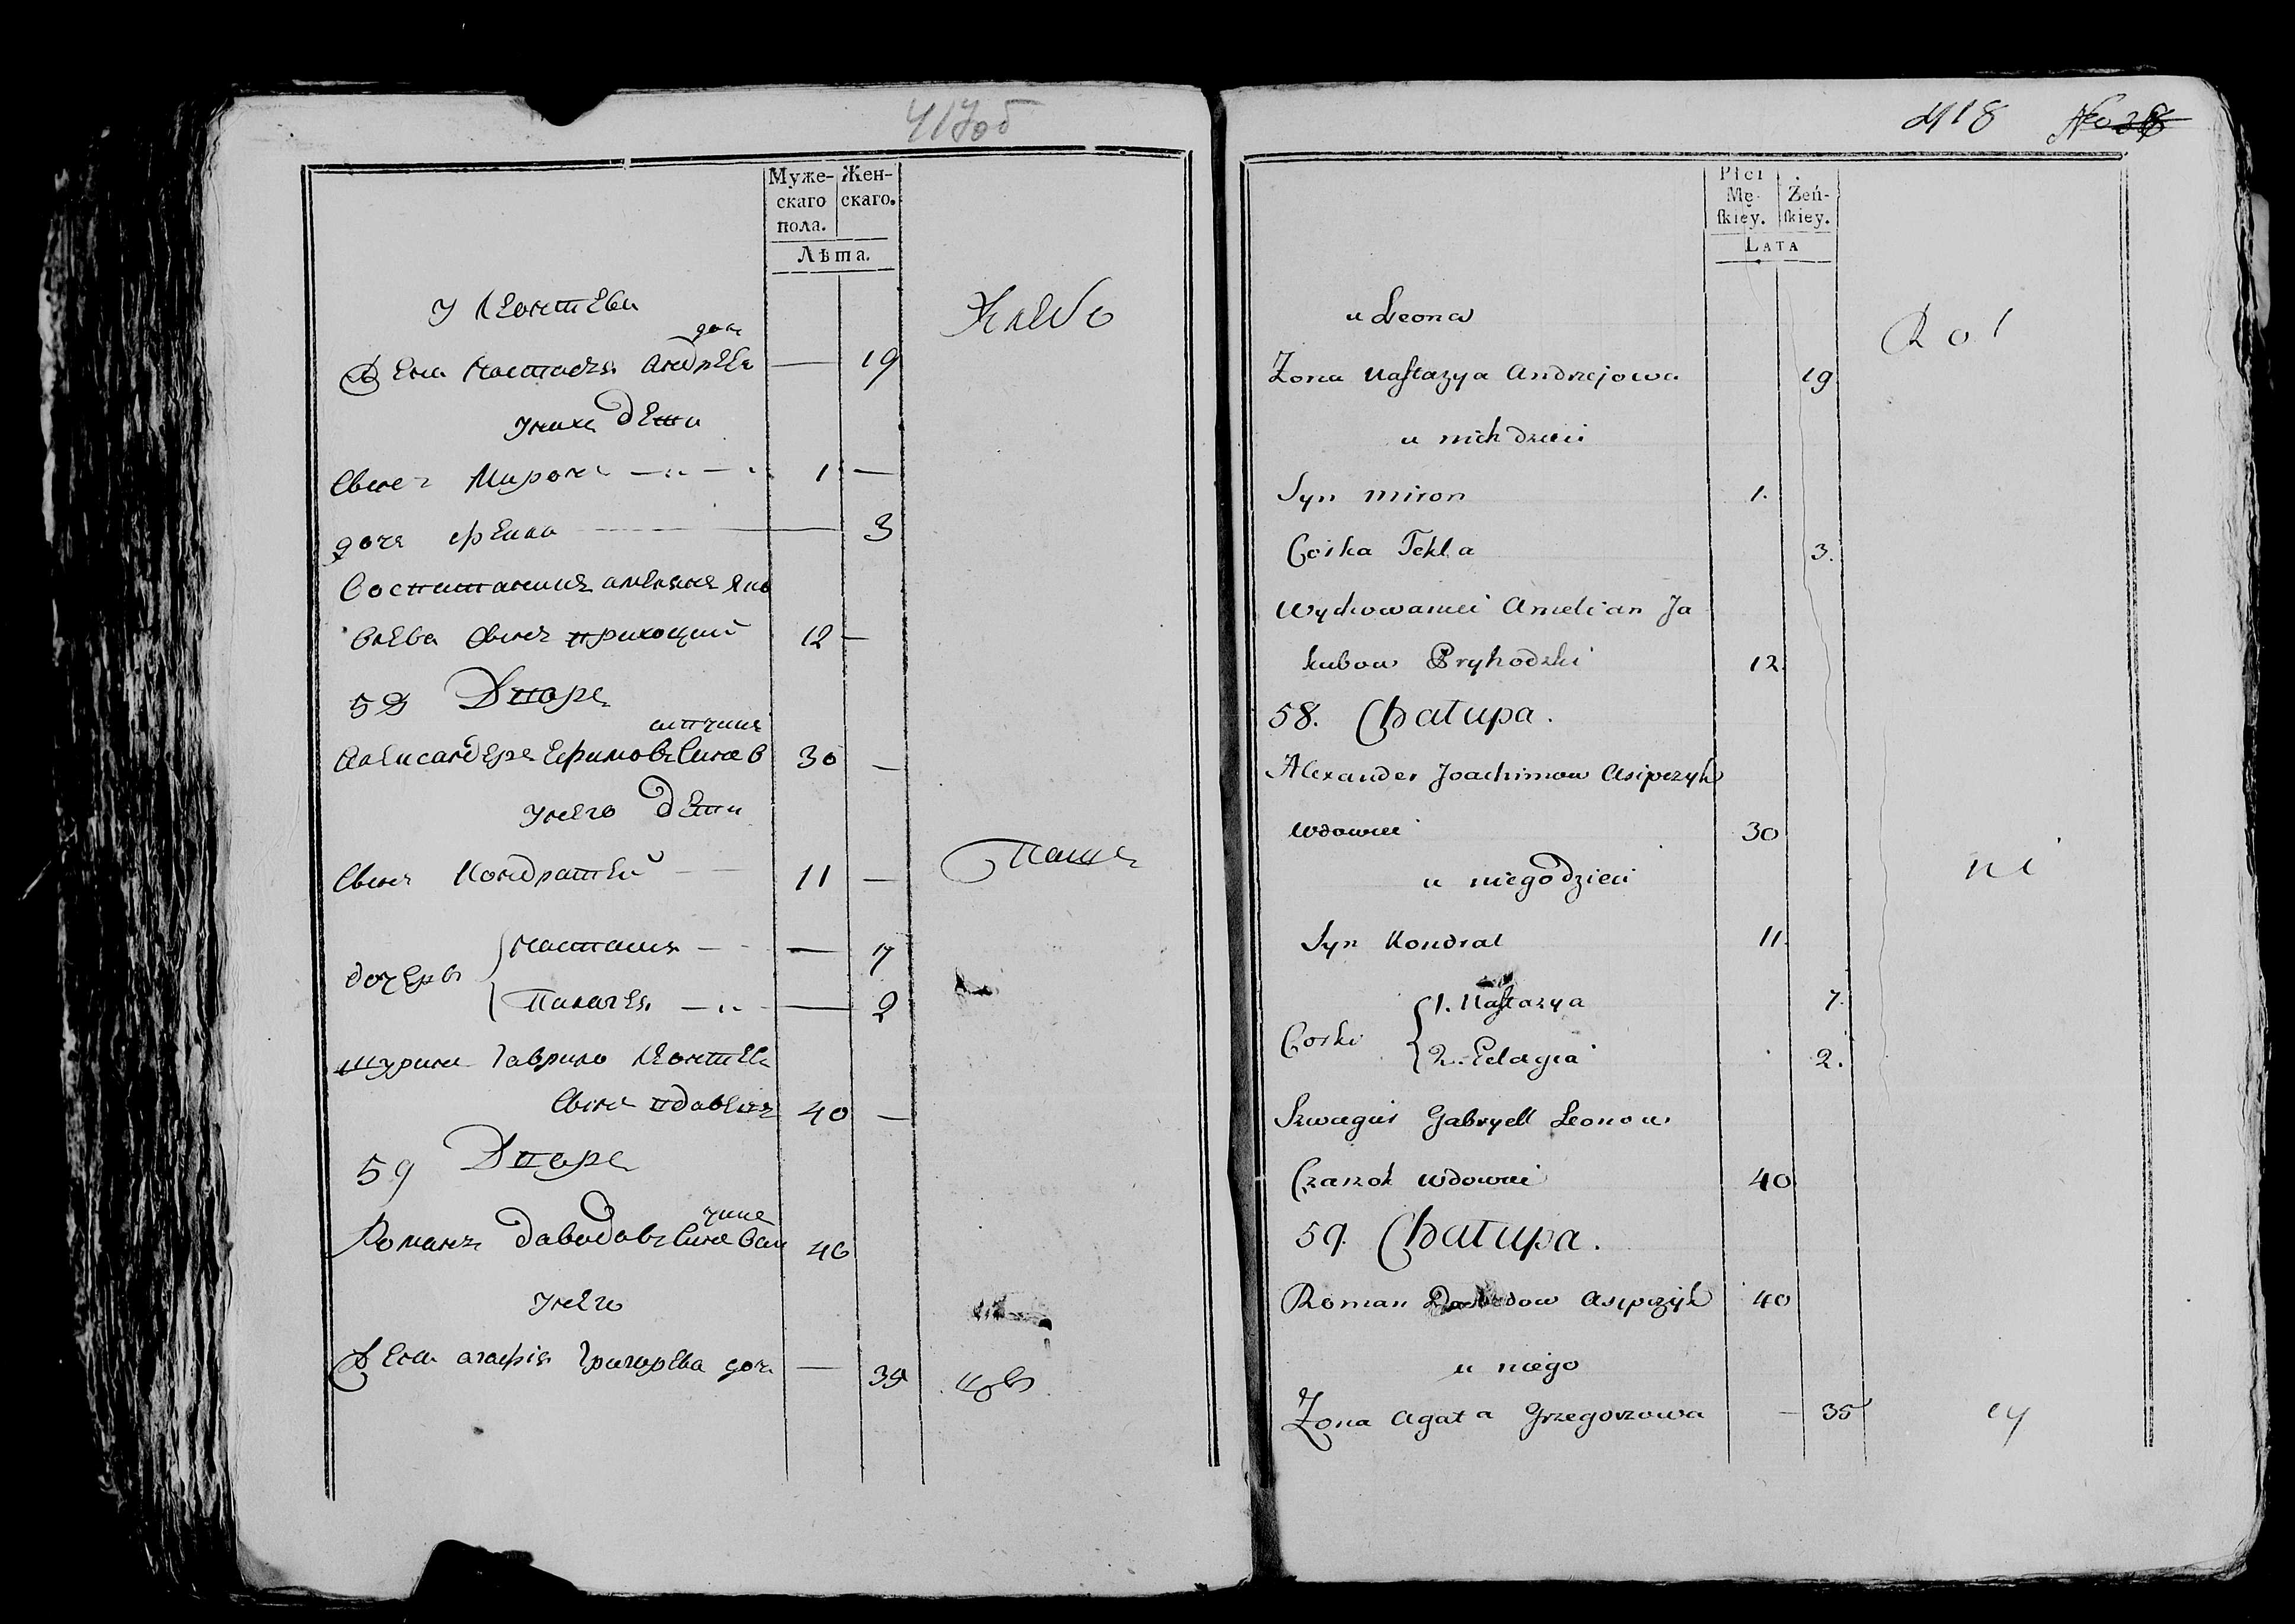 417об
Муже-
скаго
пола.
Жен-
скаго.
Лѣта.
у Леонтева
Хлебо
доч
Жена Настасья Андреев — 19
у них дети
Сын Мирон 1 —
доч Фекла — 3
Воспитаник амельян Яко
влева сын приходцкий 12 —
58 Двор
ипчик
Александер Ефимов сын в 30 —
у него дети
Сын Кондратей 11 —
Паше
дочери
Настасия — 7
Палагея — 2
шурин Гаврило Леонтев
сын вдовец 40 —
59 Двор
чик
Роман Давыдов сын 40
у него
Жена агафія Григорева доч — 35
цов
418
Płci
Mę-
ſkiey.
Żeń-
ſkiey.
Lata
u Leona
Rol
Zona Naſtazya Andrzejowa 19
u nich dzieci
Syn Miron 1.
Corka Tekla 3.
Wychowaniec Amelian Ja
kubow Pryhodzki 12
58. Chałupa.
Alexander Joachimow Asipczyk
wdowiec 30
u niego dzieci
ni
Syn Kondrat 11
Corki
1. Naſtazya 7.
2. Pelagia 2.
Szwagier Gabryell Leonow
Czaszok wdowiec 40
59. Chałupa.
Roman Dawidow Asipczyk 40
u niego
Zona Agata Grzegorzowa — 35
cy